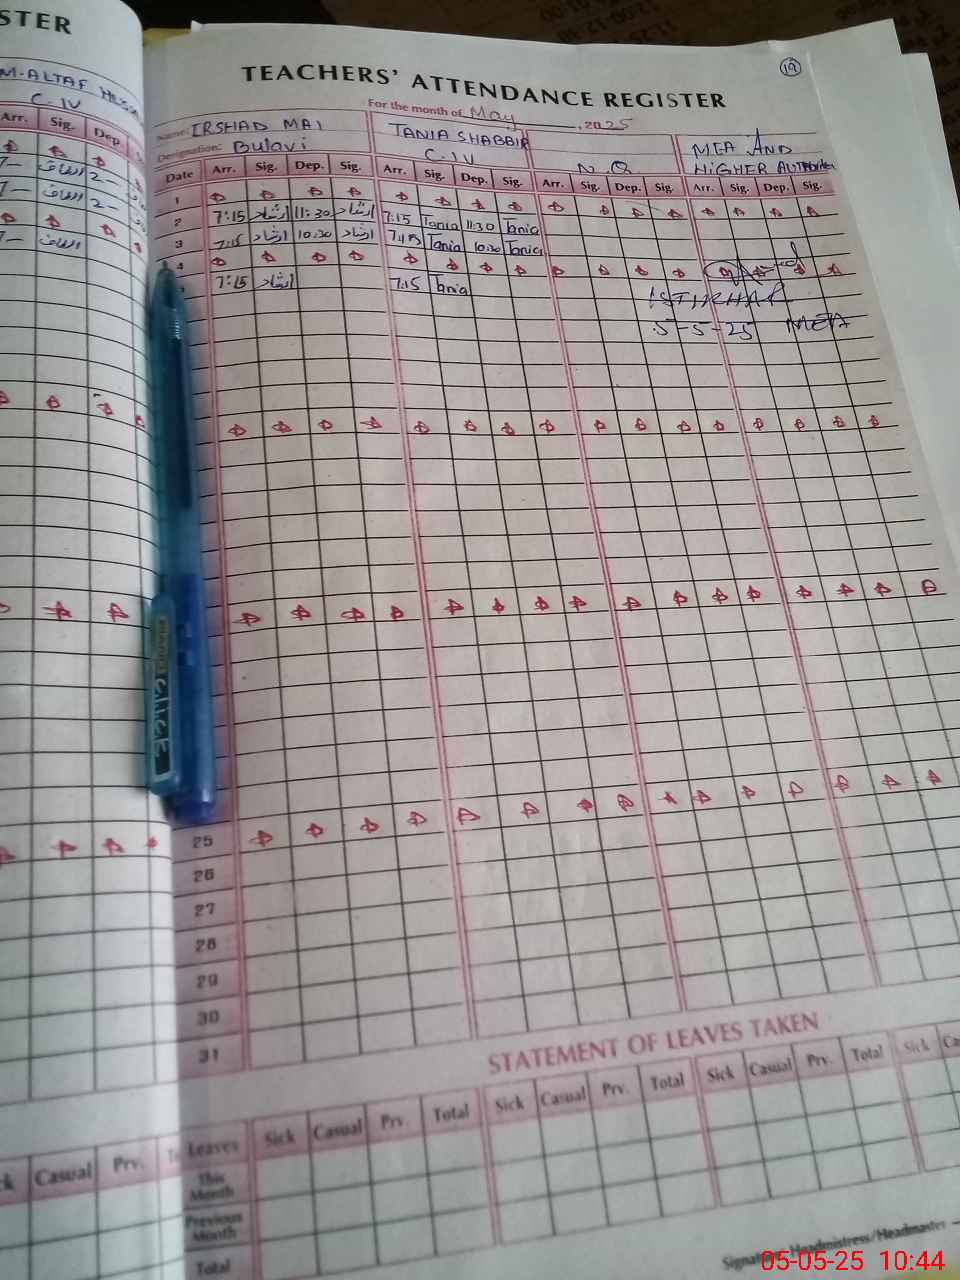 STER
TEACHERS' ATTENDANCE REGISTER
19
For the month of May, 2025
M-ALTAF
C-IV
Name: IRSHAD MAI
TANIA SHABBIR
MEA AND
Designation: Bulavi
C.IV
HIGHER
Arr. Sig. Dep.
Date Arr. Sig. Dep. Sig. Arr. Sig. Dep. Sig. Arr. Sig. Dep. Sig. Arr. Sig. Dep. Sig.
1
2 7:15 ارشاد 11:30 ارشاد 7:15 Tania 11:30 Tania
3 7:15 ارشاد 10:30 ارشاد 7:15 Tania 10:30 Tania
4
7:15 ارشاد 7:15 Tania
5-5-25 MEA
PIANO CLICK
25
26
27
28
29
30
31
STATEMENT OF LEAVES TAKEN
Leaves Sick Casual Prv. Total Sick Casual Prv. Total Sick Casual Prv. Total Sick
This Month
Previous Month
Total
Casual Prv.
Headmistress/Headmaster
05-05-25 10:44